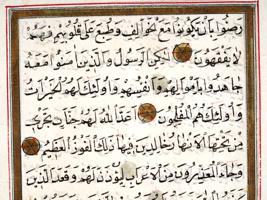 رضوا بان يكونوا مع الخوالف وطبع على قلوبهم فهم
لا يفقهون لكن الرسول والذين امنوا معه
جاهدوا باموالهم وانفسهم واولئك لهم الخيرات
واولئك هم المفلحون اعد الله لهم جنات تجري
من تحتها الانهار خالدين فيها ذلك الفوز العظيم
وجاء المعذرون من الاعراب ليؤذن لهم وقعد الذين